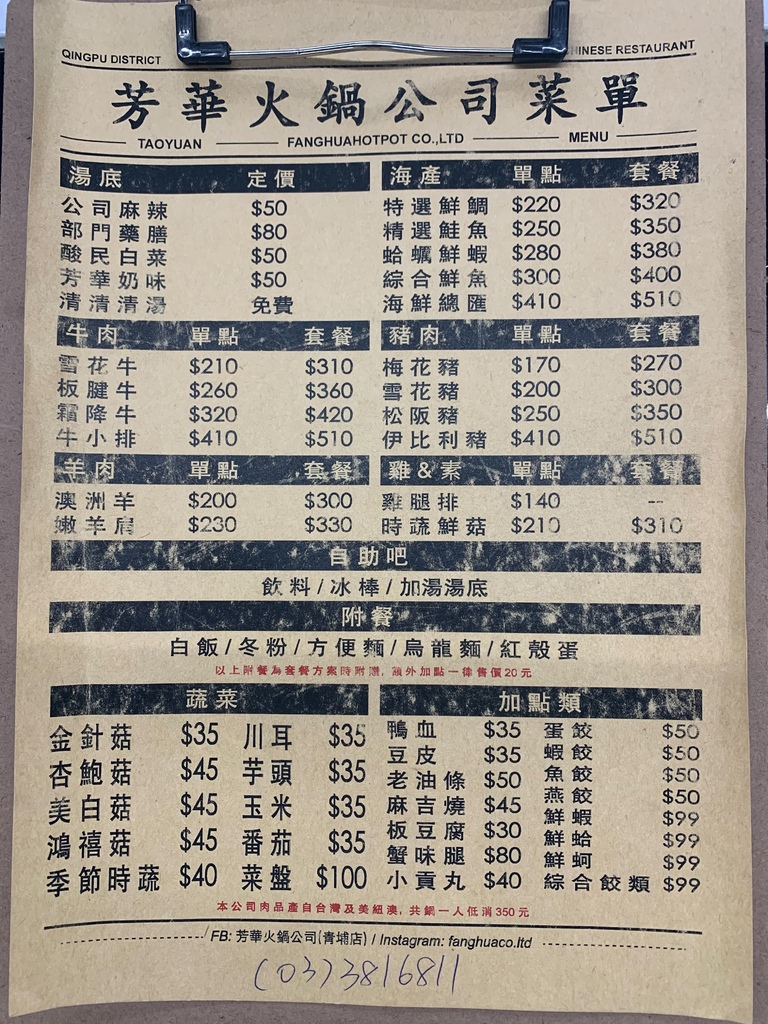 QINGPU DISTRICT HINESE RESTAURANT
芳華火鍋公司菜單
TAOYUAN FANGHUAHOTPOT CO.,LTD MENU
湯底 定價
公司麻辣 $50
部門藥膳 $80
酸民白菜 $50
芳華奶味 $50
清清清湯 免費
海產 單點 套餐
特選鮮鯛 $220 $320
精選鮭魚 $250 $350
蛤蠣鮮蝦 $280 $380
綜合鮮魚 $300 $400
海鮮總匯 $410 $510
牛肉 單點 套餐
雪花牛 $210 $310
板腱牛 $260 $360
霜降牛 $320 $420
牛小排 $410 $510
豬肉 單點 套餐
梅花豬 $170 $270
雪花豬 $200 $300
松阪豬 $250 $350
伊比利豬 $410 $510
羊肉 單點 套餐
澳洲羊 $200 $300
嫩羊肩 $230 $330
雞&素 單點 套餐
雞腿排 $140 --
時蔬鮮菇 $210 $310
自助吧
飲料/冰棒/加湯湯底
附餐
白飯/冬粉/方便麵/烏龍麵/紅殼蛋
以上附餐為套餐方案時附贈，額外加點一律售價20元
蔬菜
金針菇 $35 川耳 $35
杏鮑菇 $45 芋頭 $35
美白菇 $45 玉米 $35
鴻禧菇 $45 番茄 $35
季節時蔬 $40 菜盤 $100
加點類
鴨血 $35 蛋餃 $50
豆皮 $35 蝦餃 $50
老油條 $50 魚餃 $50
麻吉燒 $45 燕餃 $50
板豆腐 $30 鮮蝦 $99
蟹味腿 $80 鮮蛤 $99
小貢丸 $40 鮮蚵 $99
綜合餃類 $99
本公司肉品產自台灣及美紐澳，共鍋一人低消350元
FB: 芳華火鍋公司(青埔店) / Instagram: fanghuaco.ltd
(03)3816811